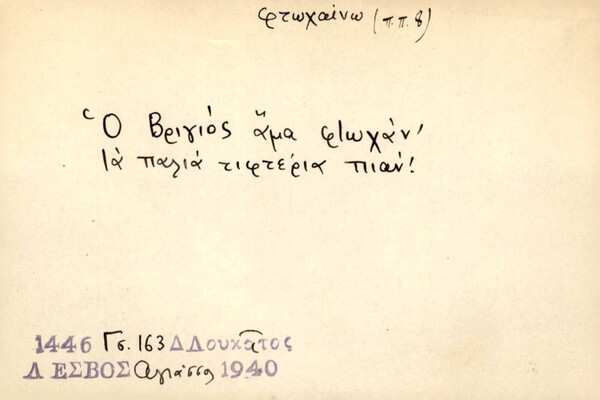 φτωχαίνω (π.π. 8)
Ὁ Βριγιός ἅμα φτωχάν'
τὰ παλιά τιφτέρια πιάν'!
1446 Γσ. 163 Δ Δουκᾶτος
ΛΕΣΒΟΣ Ἁγιάσσος 1940